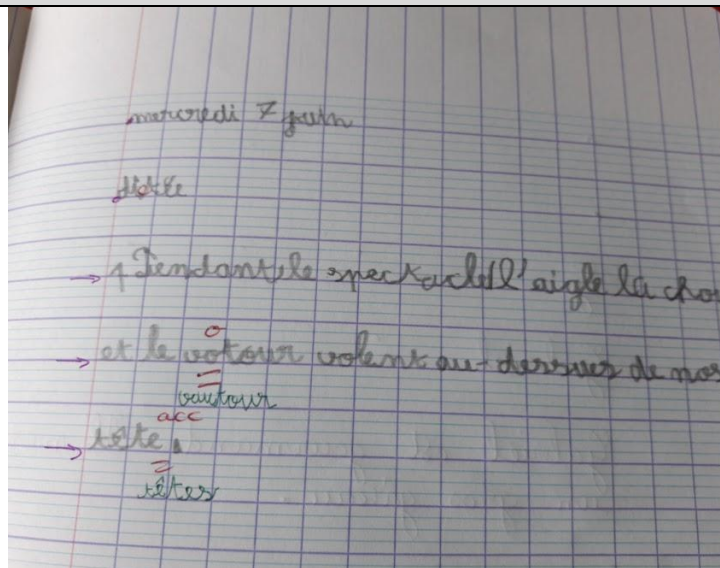 mercredi 7 juin
dictée
→ 1 Pendant le spectacle l'aigle la cho
o
et le votour volent au-dessus de nos
vautour
acc
tête.
têtes